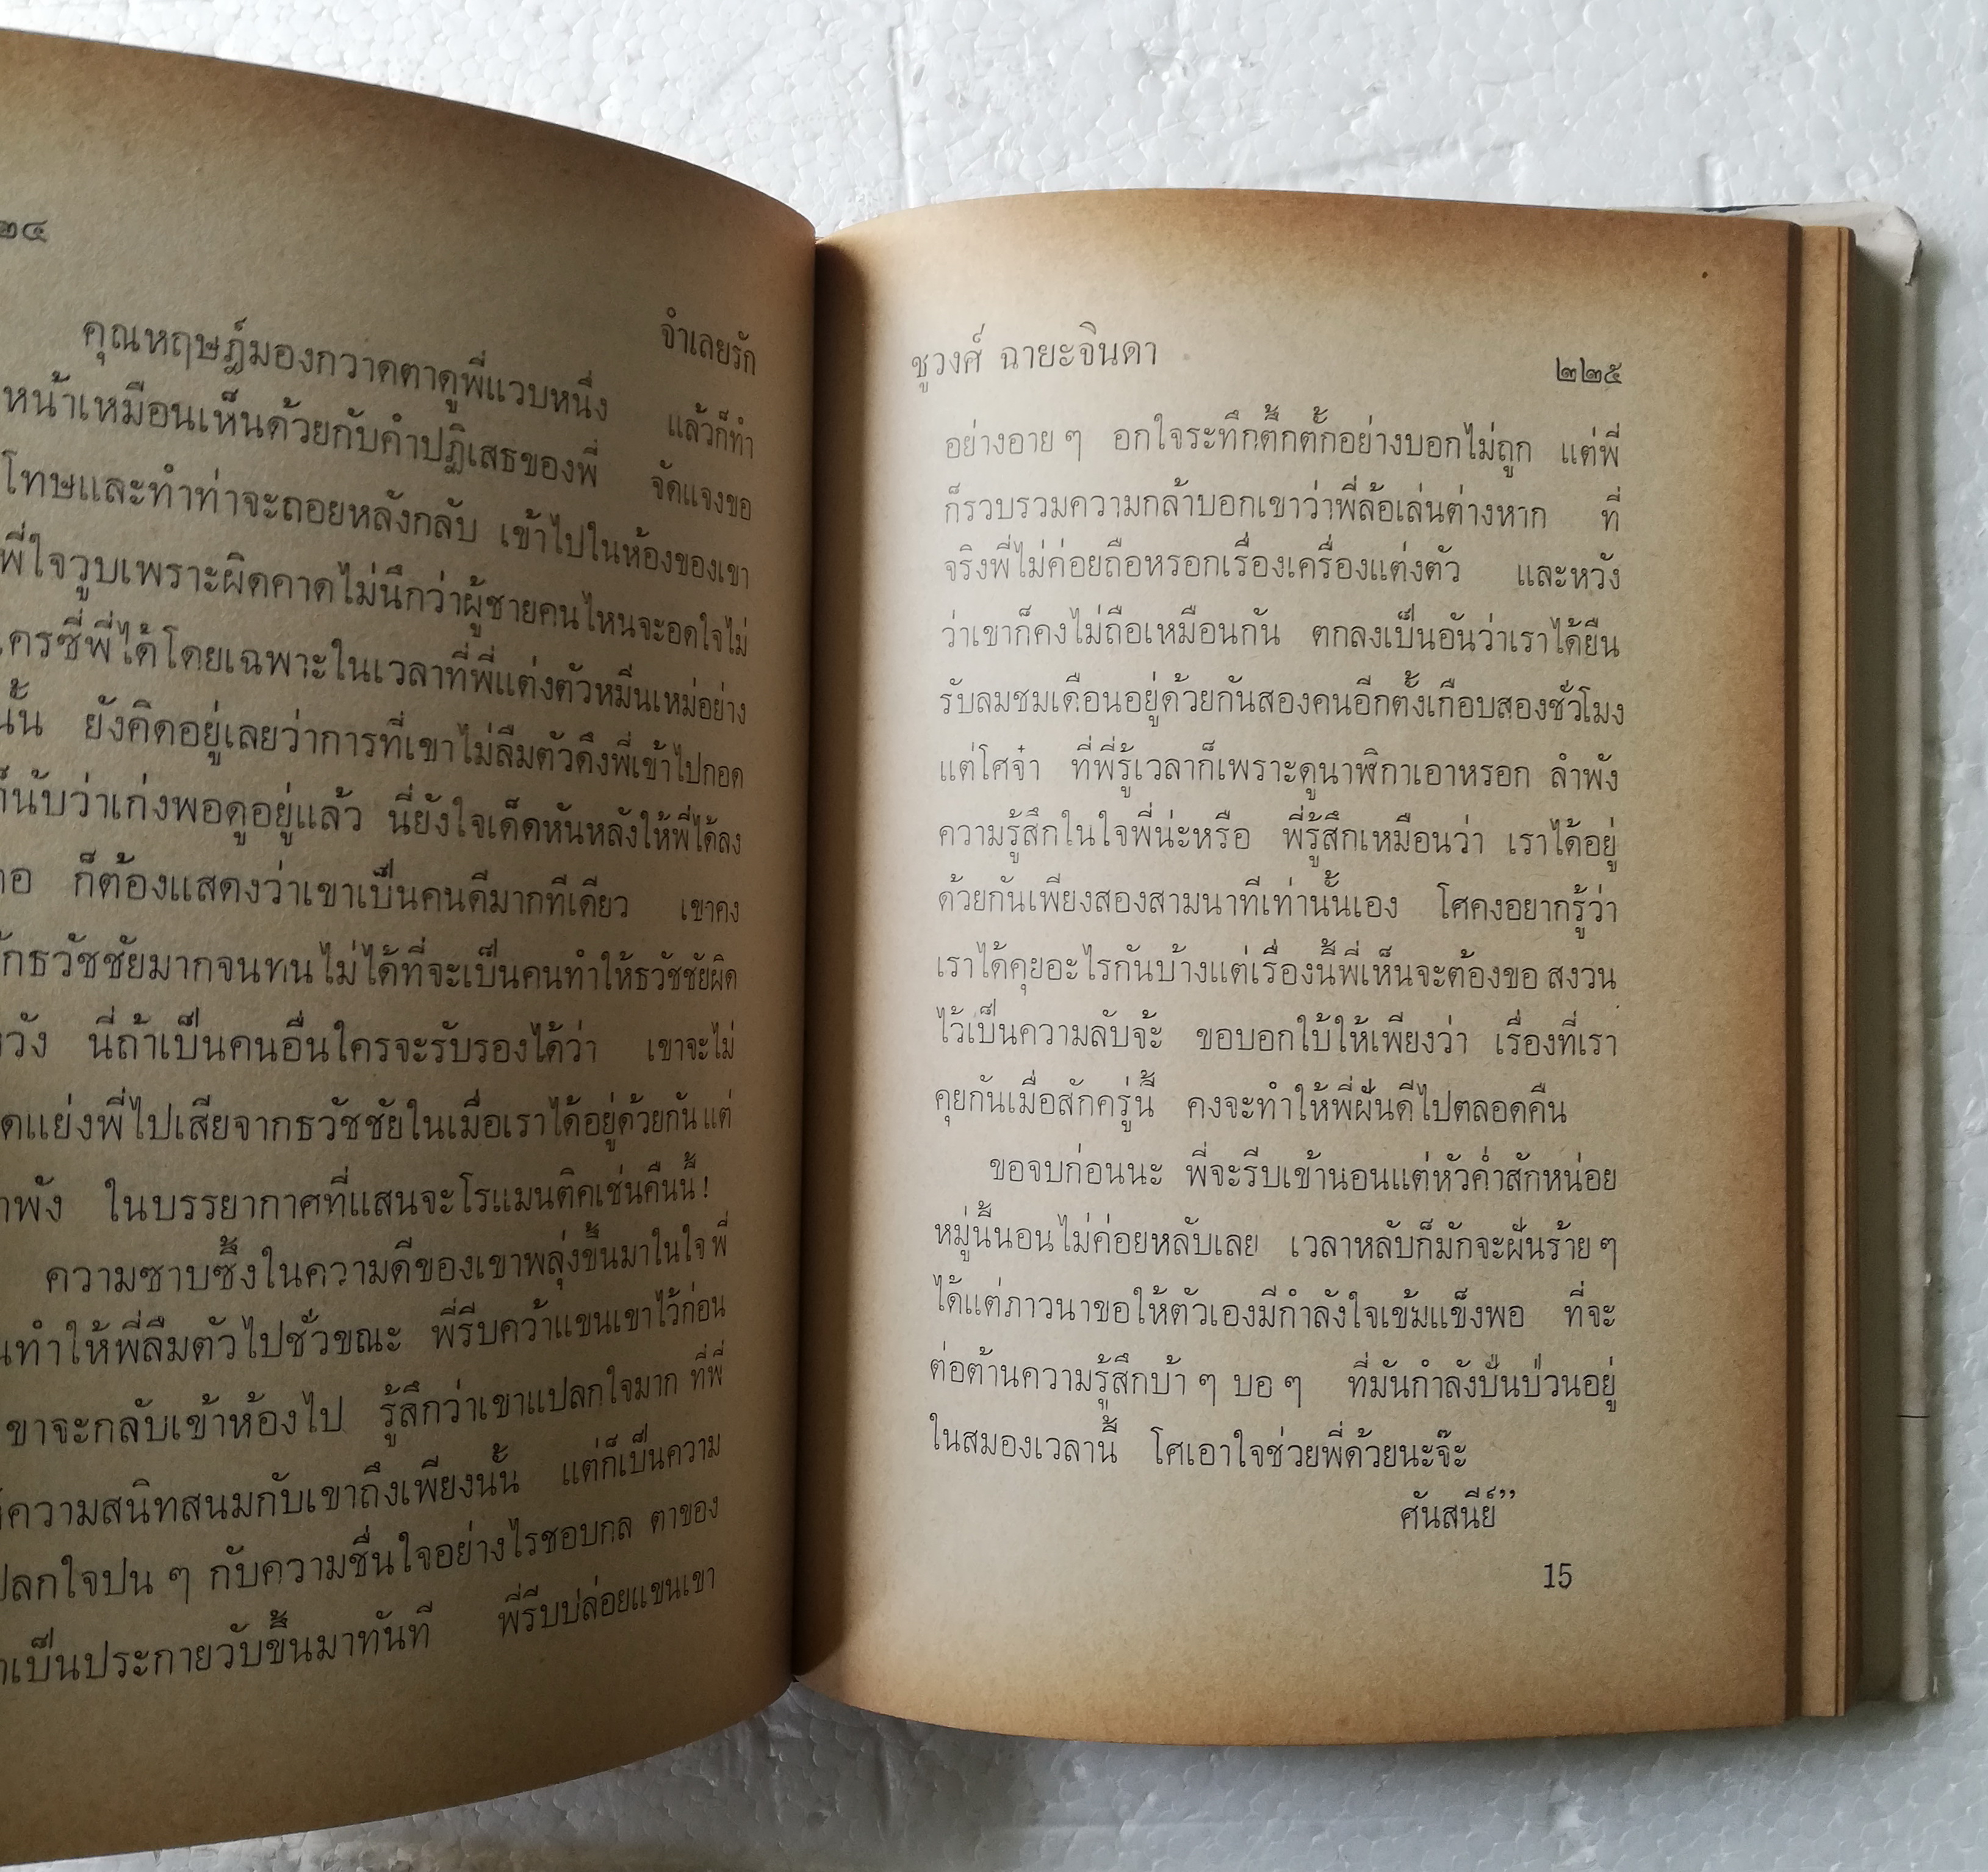 ๒๔
จำเลยรัก
คุณหฤษฎ์มองกวาดตาดูพี่แวบหนึ่ง แล้วก็ทำ
หน้าเหมือนเห็นด้วยกับคำปฏิเสธของพี่ จัดแจงขอ
โทษและทำท่าจะถอยหลังกลับ เข้าไปในห้องของเขา
พี่ใจวูบเพราะผิดคาดไม่นึกว่าผู้ชายคนไหนจะอดใจไม่
เครซี่พี่ได้โดยเฉพาะในเวลาที่พี่แต่งตัวหมิ่นเหม่อย่าง
นั้น ยังคิดอยู่เลยว่าการที่เขาไม่ลืมตัวดึงพี่เข้าไปกอด
ก็นับว่าเก่งพอดูอยู่แล้ว นี่ยังใจเด็ดหันหลังให้พี่ได้ลง
คอ ก็ต้องแสดงว่าเขาเป็นคนดีมากทีเดียว เขาคง
รักธวัชชัยมากจนทนไม่ได้ที่จะเป็นคนทำให้ธวัชชัยผิด
หวัง นี่ถ้าเป็นคนอื่นใครจะรับรองได้ว่า เขาจะไม่
แย่งพี่ไปเสียจากธวัชชัยในเมื่อเราได้อยู่ด้วยกันแต่
ลำพัง ในบรรยากาศที่แสนจะโรแมนติคเช่นคืนนี้!
ความซาบซึ้งในความดีของเขาพลุ่งขึ้นมาในใจพี่
ทำให้พี่ลืมตัวไปชั่วขณะ พี่รีบคว้าแขนเขาไว้ก่อน
เขาจะกลับเข้าห้องไป รู้สึกว่าเขาแปลกใจมาก ที่พี่
ความสนิทสนมกับเขาถึงเพียงนั้น แต่ก็เป็นความ
แปลกใจปน ๆ กับความชื่นใจอย่างไรชอบกล ตาของ
เป็นประกายวับขึ้นมาทันที พี่รีบปล่อยแขนเขา
ชูวงศ์ ฉายะจินดา ๒๒๕
อย่างอาย ๆ อกใจระทึกตึ้กตั้กอย่างบอกไม่ถูก แต่พี่
ก็รวบรวมความกล้าบอกเขาว่าพี่ล้อเล่นต่างหาก ที่
จริงพี่ไม่ค่อยถือหรอกเรื่องเครื่องแต่งตัว และหวัง
ว่าเขาก็คงไม่ถือเหมือนกัน ตกลงเป็นอันว่าเราได้ยืน
รับลมชมเดือนอยู่ด้วยกันสองคนอีกตั้งเกือบสองชั่วโมง
แต่โศจ๋า ที่พี่รู้เวลาก็เพราะดูนาฬิกาเอาหรอก ลำพัง
ความรู้สึกในใจพี่น่ะหรือ พี่รู้สึกเหมือนว่า เราได้อยู่
ด้วยกันเพียงสองสามนาทีเท่านั้นเอง โศคงอยากรู้ว่า
เราได้คุยอะไรกันบ้างแต่เรื่องนี้พี่เห็นจะต้องขอ สงวน
ไว้เป็นความลับจ้ะ ขอบอกใบ้ให้เพียงว่า เรื่องที่เรา
คุยกันเมื่อสักครู่นี้ คงจะทำให้พี่ฝันดีไปตลอดคืน
ขอจบก่อนนะ พี่จะรีบเข้านอนแต่หัวค่ำสักหน่อย
หมู่นี้นอนไม่ค่อยหลับเลย เวลาหลับก็มักจะฝันร้าย ๆ
ได้แต่ภาวนาขอให้ตัวเองมีกำลังใจเข้มแข็งพอ ที่จะ
ต่อต้านความรู้สึกบ้า ๆ บอ ๆ ที่มันกำลังปั่นป่วนอยู่
ในสมองเวลานี้ โศเอาใจช่วยพี่ด้วยนะจ๊ะ
ศันสนีย์”
15